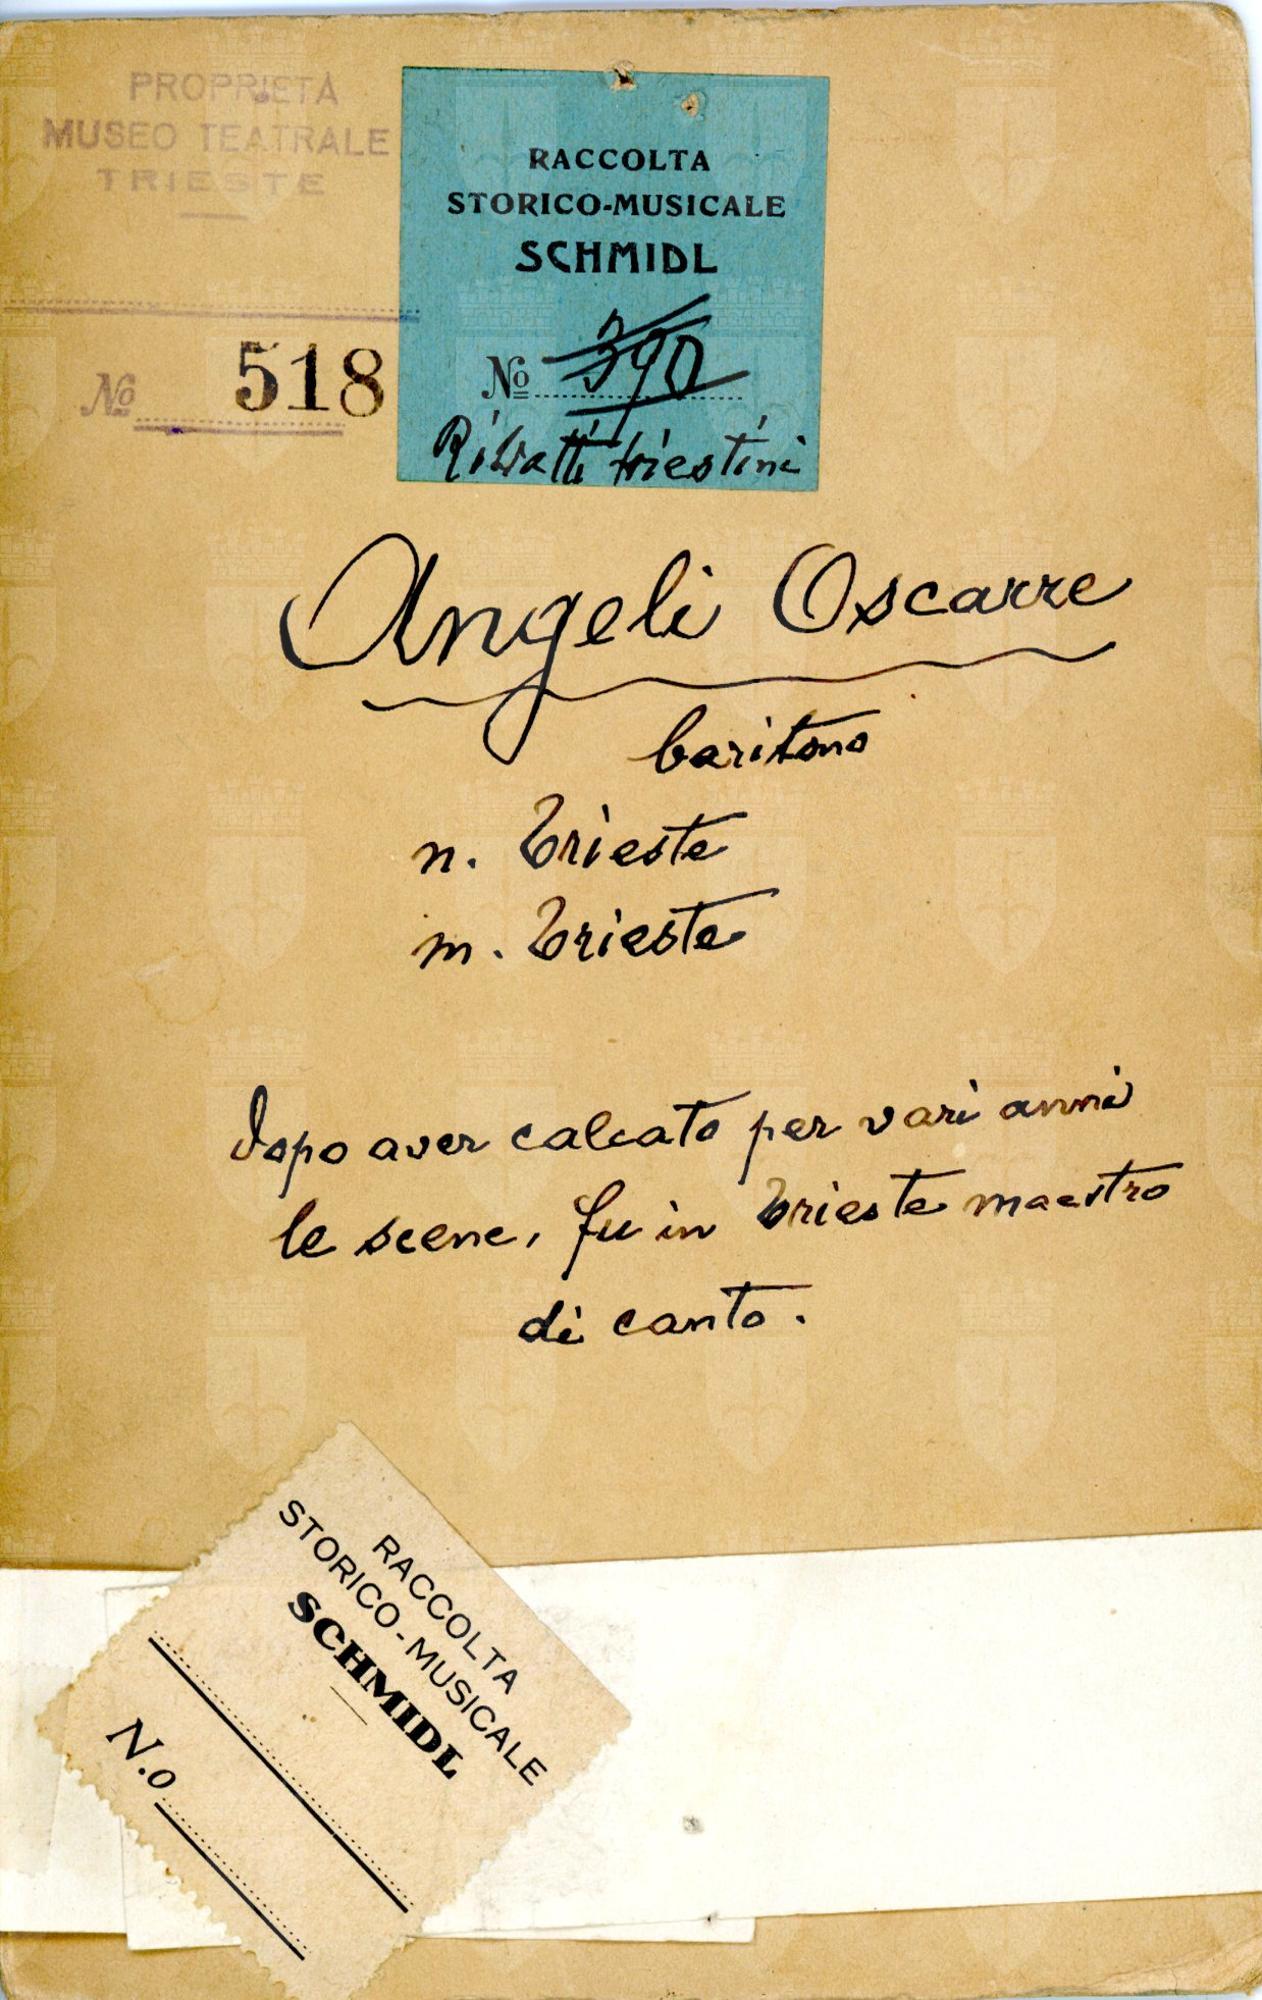 PROPRIETÀ
MUSEO TEATRALE
TRIESTE
No 518
RACCOLTA
STORICO-MUSICALE
SCHMIDL
No 390
Ritratti triestini
Angeli Oscarre
baritono
n. Trieste
m. Trieste
Dopo aver calcato per vari anni
le scene, fu in Trieste maestro
di canto.
RACCOLTA
STORICO-MUSICALE
SCHMIDL
N.o